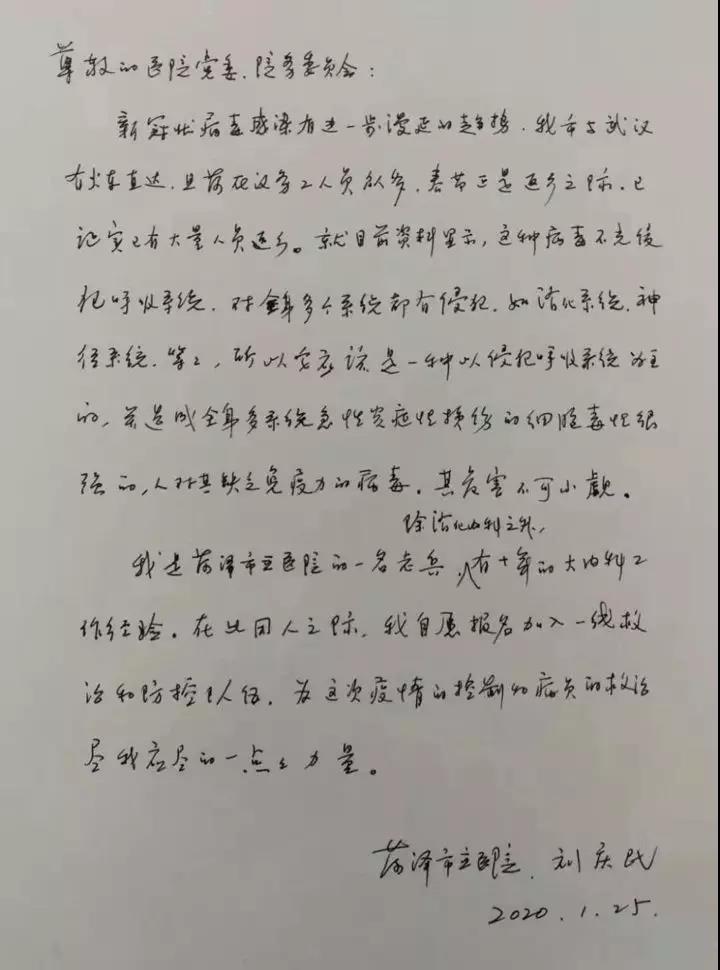 尊敬的医院党委、院务委员会：
新冠状病毒感染有进一步漫延的趋势，我市与武汉
有火车直达，且菏在汉务工人员众多，春节正是返乡之际，已
证实已有大量人员返乡。就目前资料显示，这种病毒不光侵
犯呼吸系统，对全身多个系统都有侵犯，如消化系统、神
经系统，等等，所以它应该是一种以侵犯呼吸系统为主
的，并造成全身多系统急性炎症性损伤的细胞毒性很
强的，人对其缺乏免疫力的病毒。其危害不可小觑。
除消化内科之外，
我是菏泽市立医院的一名老兵，有十年的大内科工
作经验。在此困人之际，我自愿报名加入一线救
治和防控队伍，为这次疫情的控制和病员的救治
尽我应尽的一点点力量。
菏泽市立医院 刘庆民
2020.1.25.